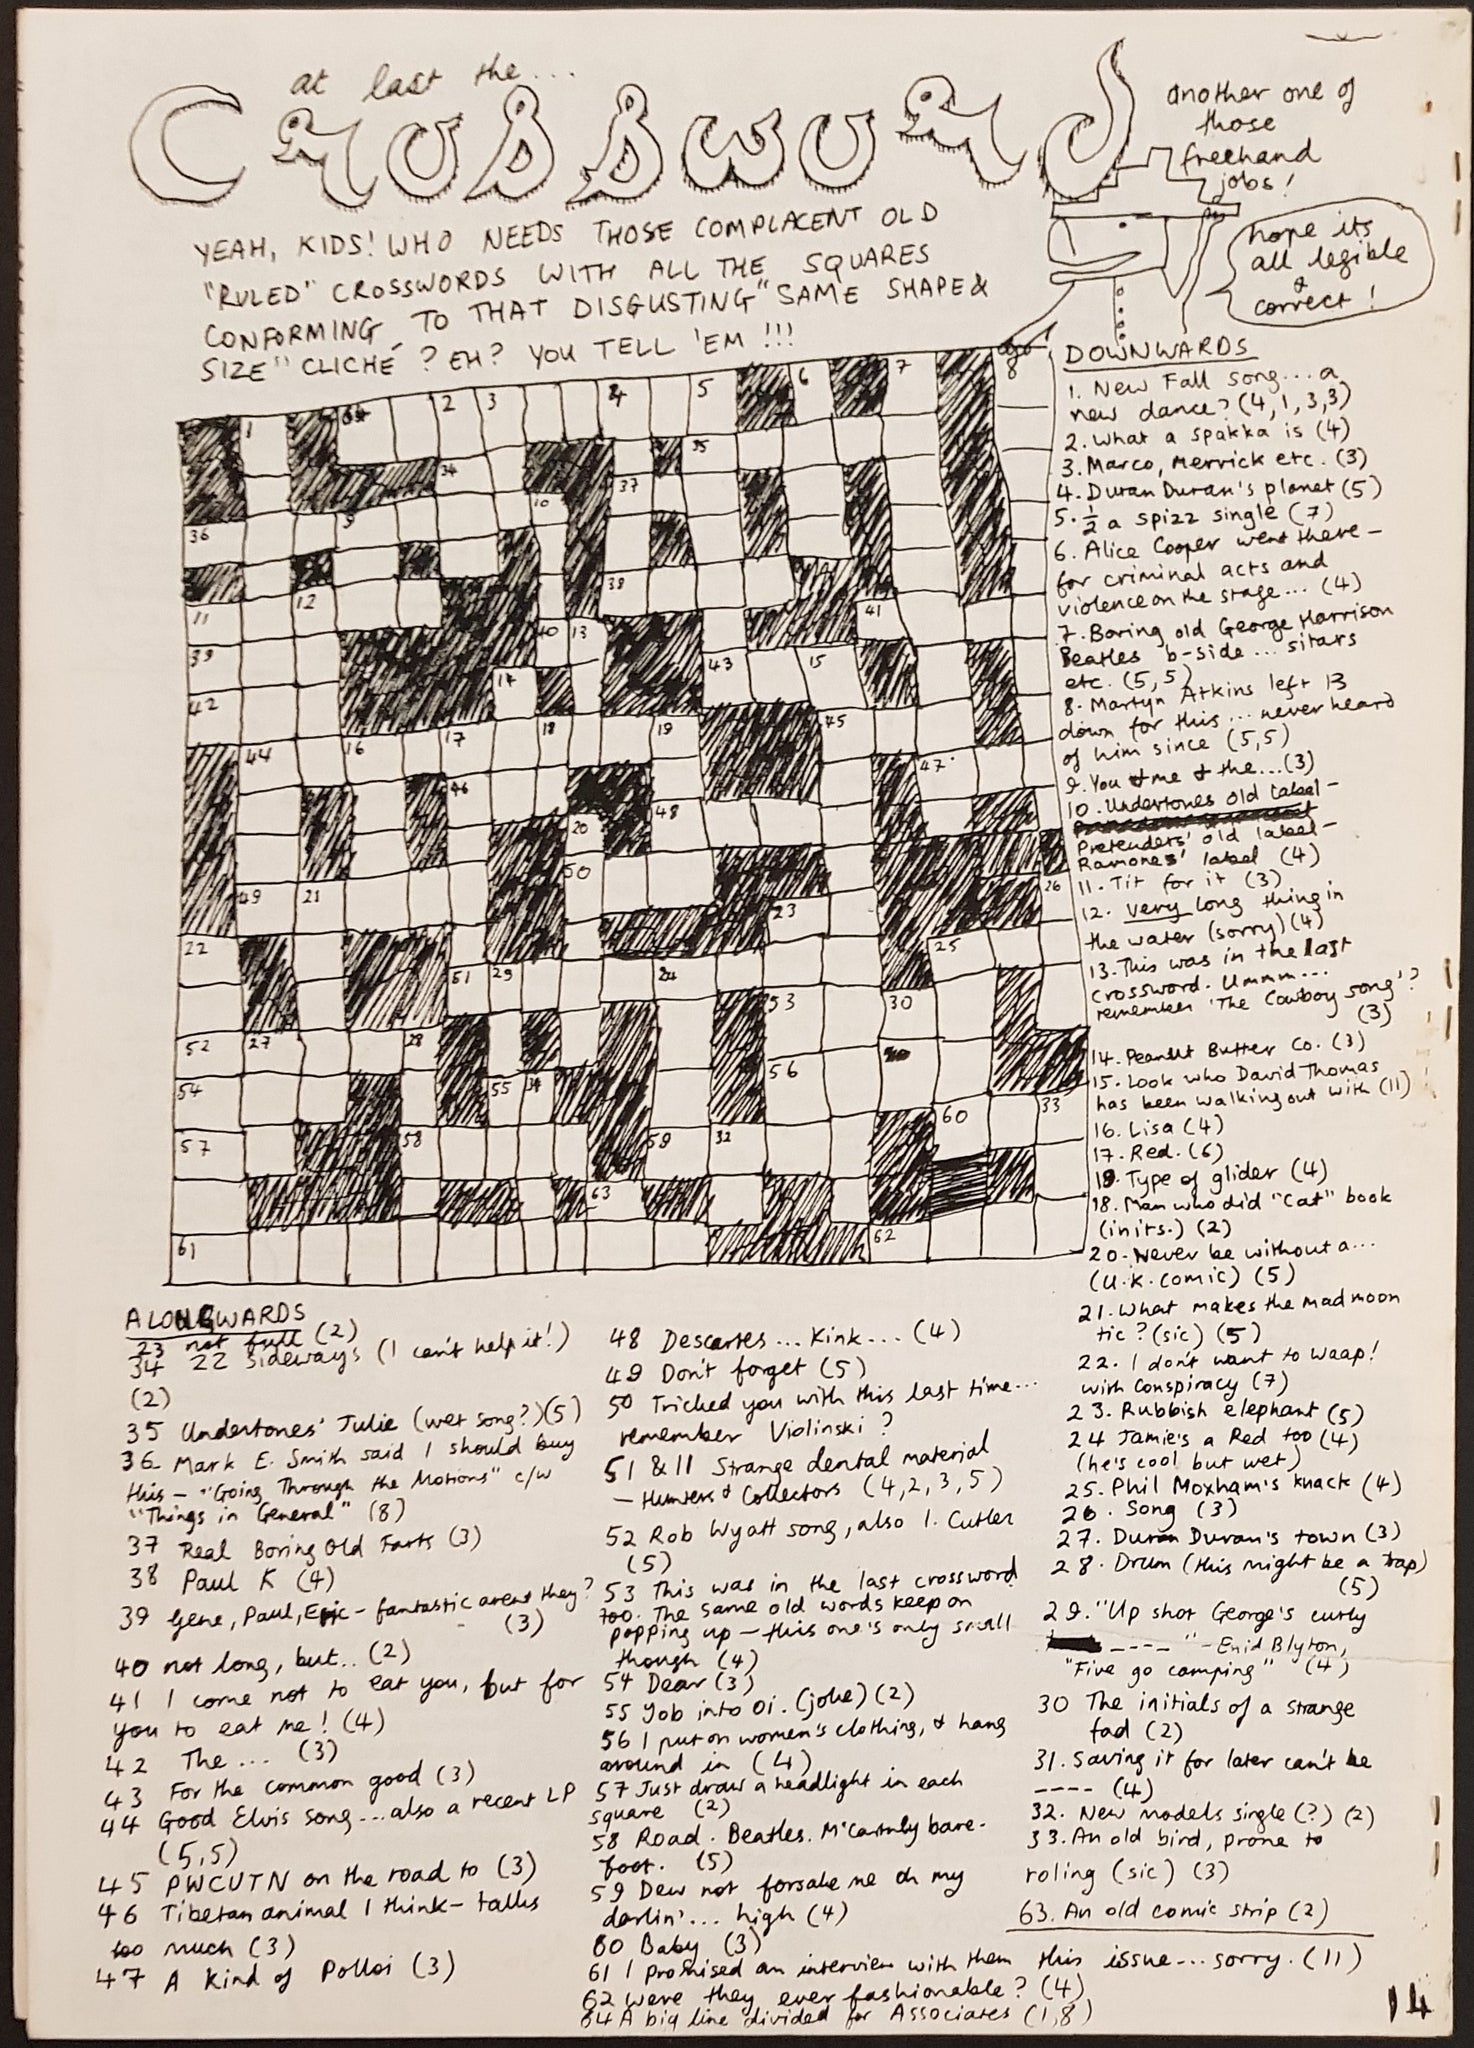 at last the...
Crossword
another one of
those
freehand
jobs!
hope its
all legible
&
correct!
YEAH, KIDS! WHO NEEDS THOSE COMPLACENT OLD
"RULED" CROSSWORDS WITH ALL THE SQUARES
CONFORMING TO THAT DISGUSTING "SAME SHAPE &
SIZE" CLICHÉ? EH? YOU TELL 'EM!!!
1 2 3 4 5 6 7 8
34 35
9 10 37
36
11 12 38 41
39 40 13 43 15
42 14
44 16 17 18 19 45
46 47
20 48
49 21 50 26
22 23 25
51 29 24
53 30
52 27 28
54 55 56
57 58 59 32 60 33
63
61 62
DOWNWARDS
1. New Fall song... a
new dance? (4,1,3,3)
2. What a spakka is (4)
3. Marco, Merrick etc. (3)
4. Duran Duran's planet (5)
5. ½ a spizz single (7)
6. Alice Cooper went there –
for criminal acts and
violence on the stage... (4)
7. Boring old George Harrison
Beatles b-side... sitars
etc. (5,5)
8. Martyn Atkins left 13
down for this... never heard
of him since (5,5)
9. You & me & the...(3)
10. Undertones old label –
Pretenders' old label –
Ramones' label (4)
11. Tit for it (3)
12. Very long thing in
the water (sorry) (4)
13. This was in the last
crossword. Ummm...
remember 'The Cowboy song'?
(3)
14. Peanut Butter Co. (3)
15. Look who David Thomas
has been walking out with (11)
16. Lisa (4)
17. Red. (6)
19. Type of glider (4)
18. Man who did "Cat" book
(inits.) (2)
20. Never be without a...
(U.K. comic) (5)
21. What makes the mad moon
tic? (sic) (5)
22. I don't want to waap!
with Conspiracy (7)
23. Rubbish elephant (5)
24 Jamie's a Red too (4)
(he's cool but wet)
25. Phil Moxham's knack (4)
26. Song (3)
27. Duran Duran's town (3)
28. Drum (this might be a trap)
(5)
29. "Up shot George's curly
---- " – Enid Blyton,
"Five go camping" (4)
30 The initials of a strange
fad (2)
31. Saving it for later can't be
---- (4)
32. New models single (?) (2)
33. An old bird, prone to
roling (sic) (3)
63. An old comic strip (2)
ALONGWARDS
23 not full (2)
34 22 sideways (I can't help it!)
(2)
35 Undertones' Julie (wet song?)(5)
36 Mark E. Smith said I should buy
this – "Going Through the Motions" c/w
"Things in General" (8)
37 Real Boring Old Farts (3)
38 Paul K (4)
39 Gene, Paul, Eric – fantastic arent they?
(3)
40 not long, but.. (2)
41 I come not to eat you, but for
you to eat me! (4)
42 The ... (3)
43 For the common good (3)
44 Good Elvis song...also a recent LP
(5,5)
45 PWCUTN on the road to (3)
46 Tibetan animal I think – talks
too much (3)
47 A kind of Polloi (3)
48 Descartes... Kink.... (4)
49 Don't forget (5)
50 Tricked you with this last time...
remember Violinski?
51 & 11 Strange dental material
– Hunters & Collectors (4,2,3,5)
52 Rob Wyatt song, also I. Cutler
(5)
53 This was in the last crossword
too. The same old words keep on
popping up – this one's only small
though (4)
54 Dear (3)
55 Yob into Oi. (joke) (2)
56 I put on women's clothing, & hang
around in (4)
57 Just draw a headlight in each
square (2)
58 Road. Beatles. McCartnly bare-
foot. (5)
59 Dew not forsake me oh my
darlin'... high (4)
60 Baby (3)
61 I promised an interview with them this issue... sorry. (11)
62 were they ever fashionable? (4)
64 A big line divided for Associates (1,8)
14